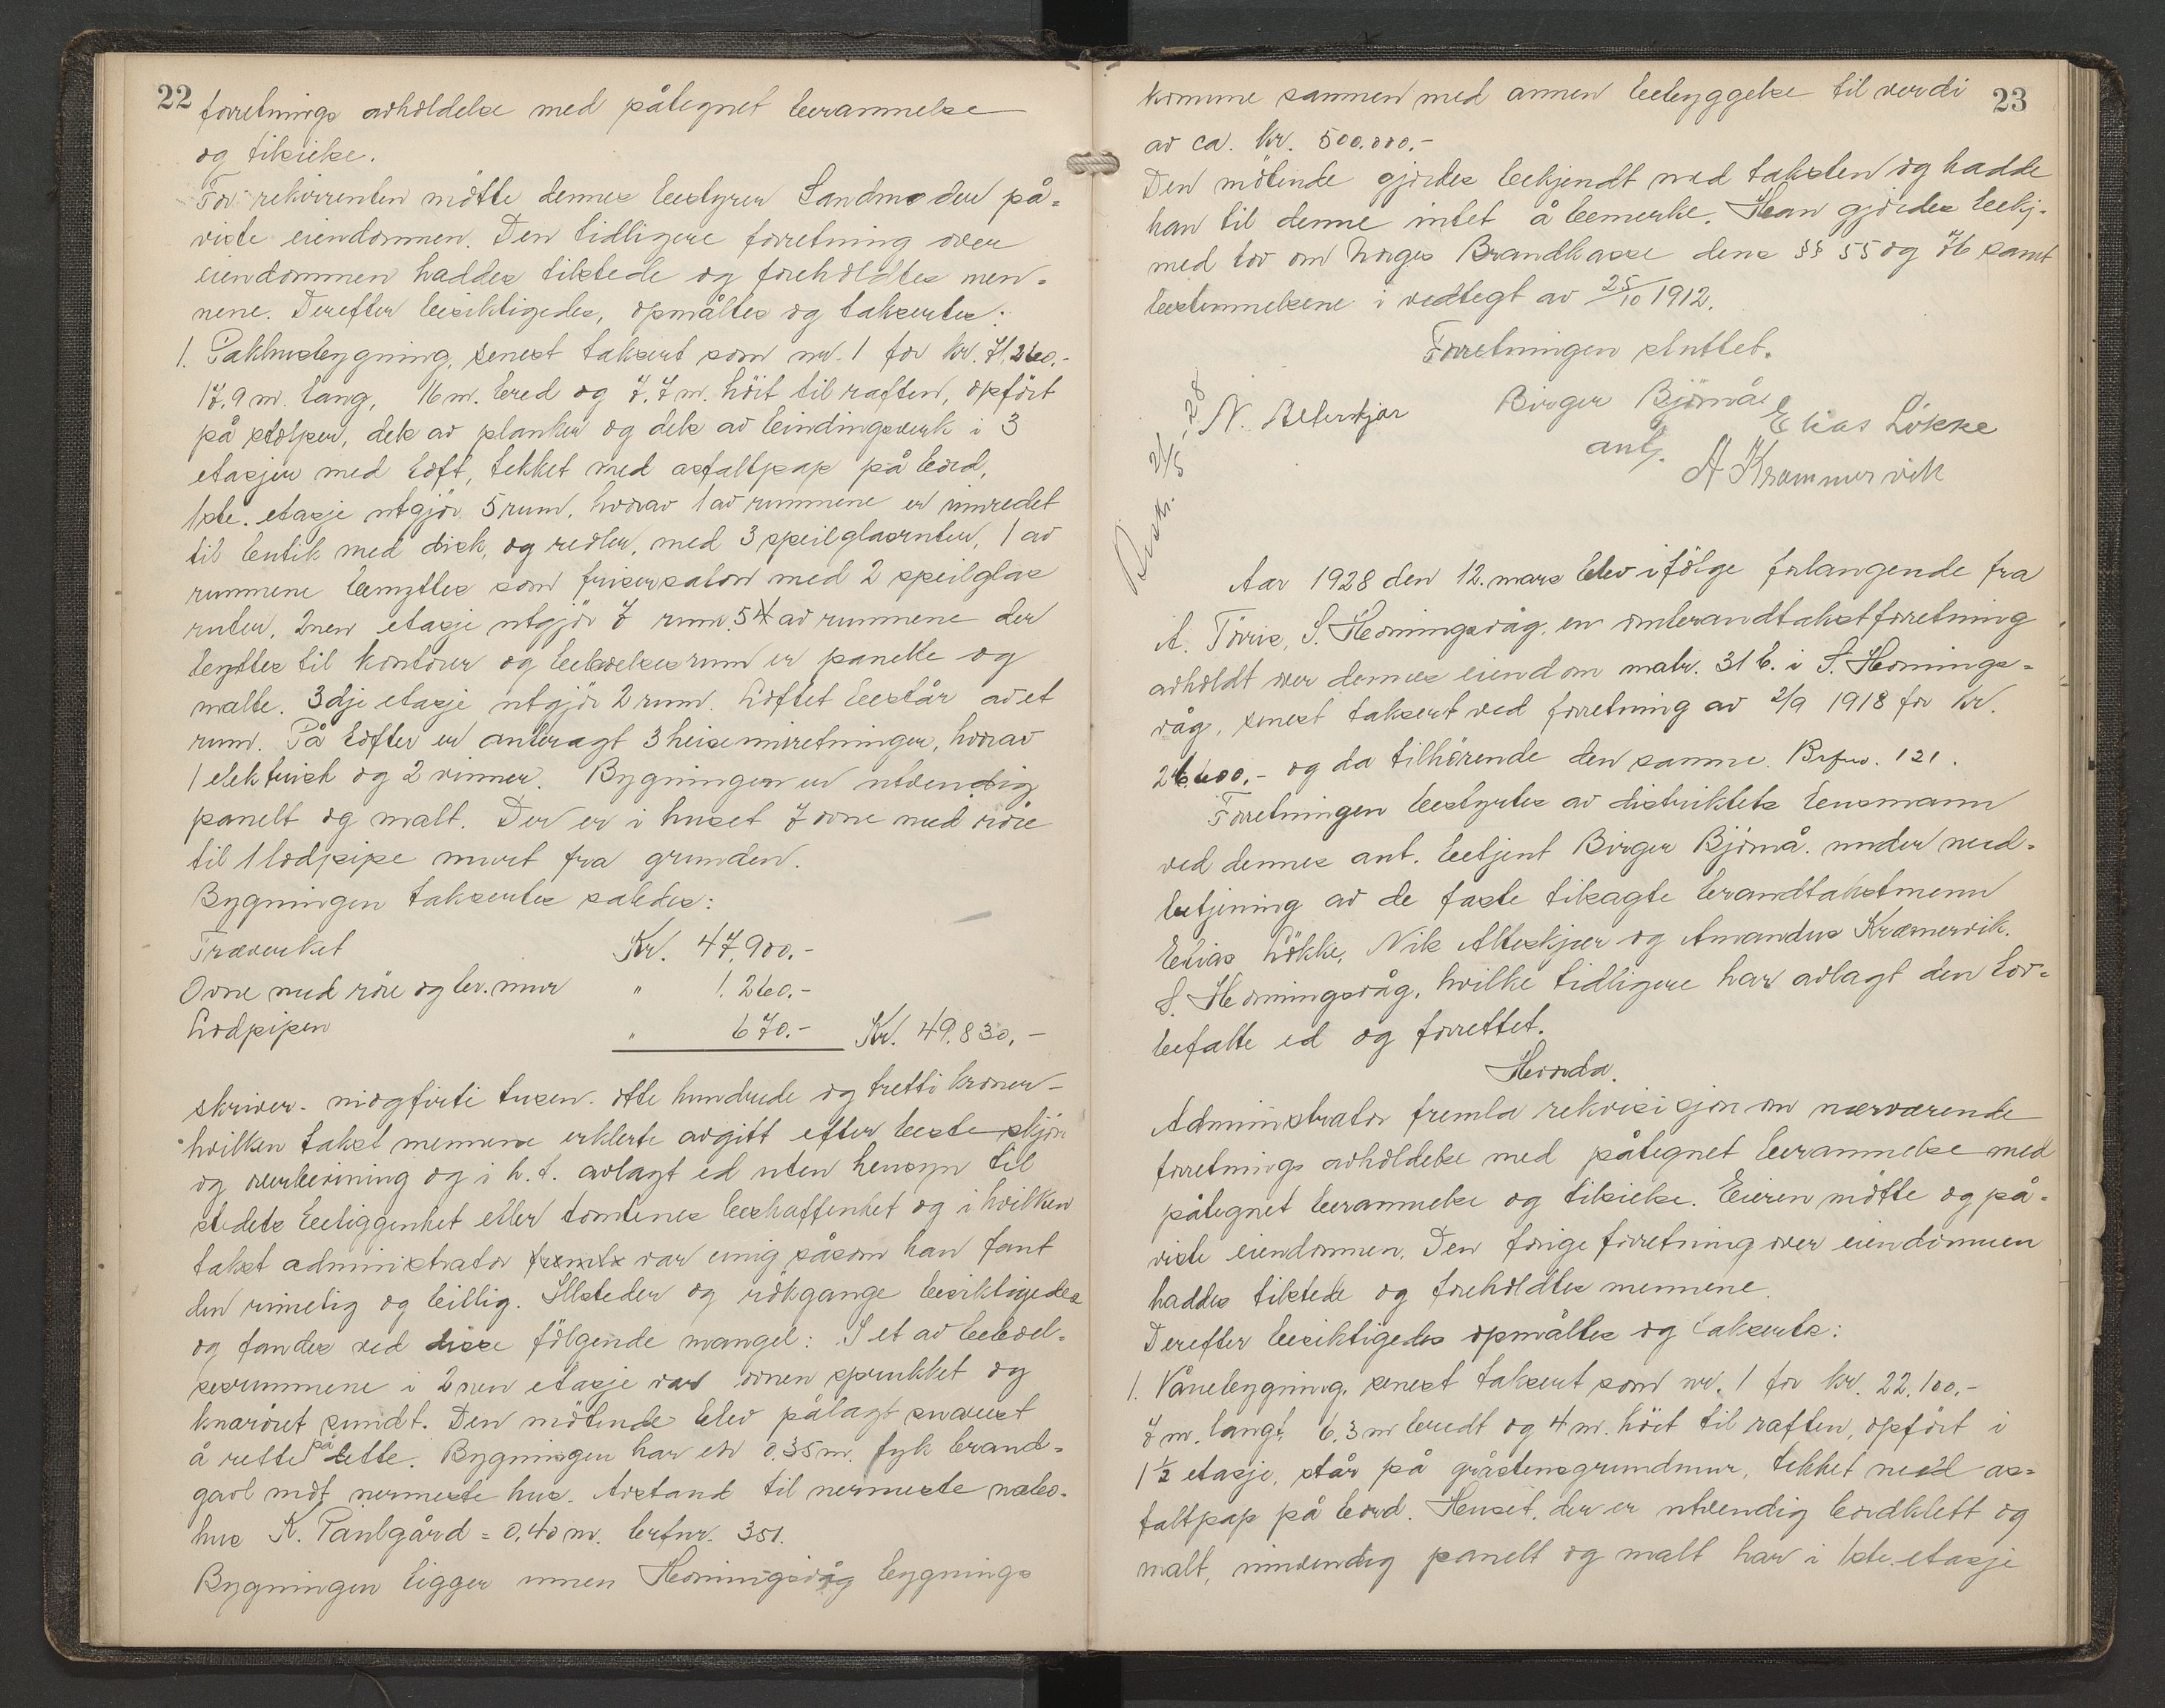 22
forretnings avholdelse med påtegnet berammelse
og tilsielse.
For rekvirenten møtte dennes bestyrer Sandmo der på-
viste eiendommen. Den tidligere forretning over
eiendommen haddes tilstede og foreholdtes men-
nene. Derefter besiktigedes, opmåltes og taksertes:
1. Pakhusbygning, senest taksert som nr. 1 for kr. 71,260.-
17,9 m. lang, 16 m. bred og 7,7 m. höit til raften, opfört
på stolper, dels av planker og dels av bindingsverk i 3
etasjer med loft, tekket med asfaltpap på bord,
1ste. etasje utgjör 5 rum, hvorav 1 av rummene er innredet
til butik med disk, og reoler, med 3 speilglasruter, 1 av
rummene benyttes som frisersalon med 2 speilglas
ruter, 2nen etasje utgjör 7 rum. 5 av rummene der
benyttes til kontorer og beboelsesrum er panelte og
malte. 3dje etasje utgjör 2 rum. Loftet består av et
rum. På lofter er anbragt 3 heiseinnretninger, hvorav
1 elektrisk og 2 vinner. Bygningen er utvendig
panelt og malt. Der er i huset 7 ovne med röre
til 1 lodpipe murt fra grunden.
Bygningen taksertes således:
Træverket Kr. 47,900.-
Ovne med röre og lev. mur " 1.260.-
Lodpipen " 670.- Kr. 49.830,-
skriver. niogfirti tusen. otte hundrede og tretti kroner-
hvilken takst mennene erklerte avgitt efter beste skjön
og overbevisning og i h. t. avlagt ed uten hensyn til
stedets beliggenhet eller tomtenes beskaffenhet og i hvilken
takst administrator fremla var enig såsom han fant
den rimelig og billig. Illsteder og rökgange besiktigedes
og fandes ved disse fölgende mangel: I et av beboel-
sesrummene i 2nen etasje var ovnen sprukket og
knæröret rundt. Den mötende blev pålagt snarest
å rette på dette. Bygningen har en 0.35 m. tyk brand-
gavl mot nermeste hus. Avstand til nermeste nabo-
hus K. Paulgård = 0,40 m. brfnr. 351.
Bygningen ligger innen Honningsvåg bygnings
23
komme sammen med annen bebyggelse til verdi
av ca. kr. 500.000.-
Den mötende gjordes bekjendt med taksten og hadde
han til denne intet å bemerke. Han gjordes bekj.
med lov om Norges Brandkasse dens §§ 55 og 76 samt
bestemmelsene i vedtegt av 25/10 1912.
Forretningen sluttet.
N. Alterskjær Birger Björnå Elias Lökke
ant.
A Kræmmervik
21/5.28
Aar 1928 den 12. mars blev ifölge forlangende fra
A. Törris, S. Honningsvåg, en ombrandtakstforretning
avholdt over dennes eiendom matr. 31 b. i S. Honnings-
våg, senest taksert ved forretning av 2/9 1918 for kr.
26.600.- og da tilhörende den samme. Brfnr. 121.
Forretningen bestyrtes av distriktets lensmann
ved dennes ant. betjent Birger Björnå. under med-
betjening av de faste tilsagte brandtakstmenn
Elias Lökke, Nils Alteskjær og Amandus Kræmervik.
S. Honningsvåg, hvilke tidligere har avlagt den lov-
befalte ed og forrettet.
Hvorda.
Administrator fremla rekvisisjon om nærværende
forretnings avholdelse med påtegnet berammelse med
påtegnet berammelse og tilsielse. Eieren mötte og på-
viste eiendommen. Den forige forretning over eiendommen
haddes tilstede og foreholdtes mennene.
Derefter besiktigedes opmåltes og takserts:
1. Vånebygning, senest taksert som nr. 1 for kr. 22.100.-
7 m. langt, 6.3 m bredt og 4 m. höit til raften, opfört i
1½ etasje, står på gråstensgrundmur, tekket med as-
faltpap på bord. Huset, der er utvendig bordklett og
malt, innvendig panelt og malt har i 1ste. etasje